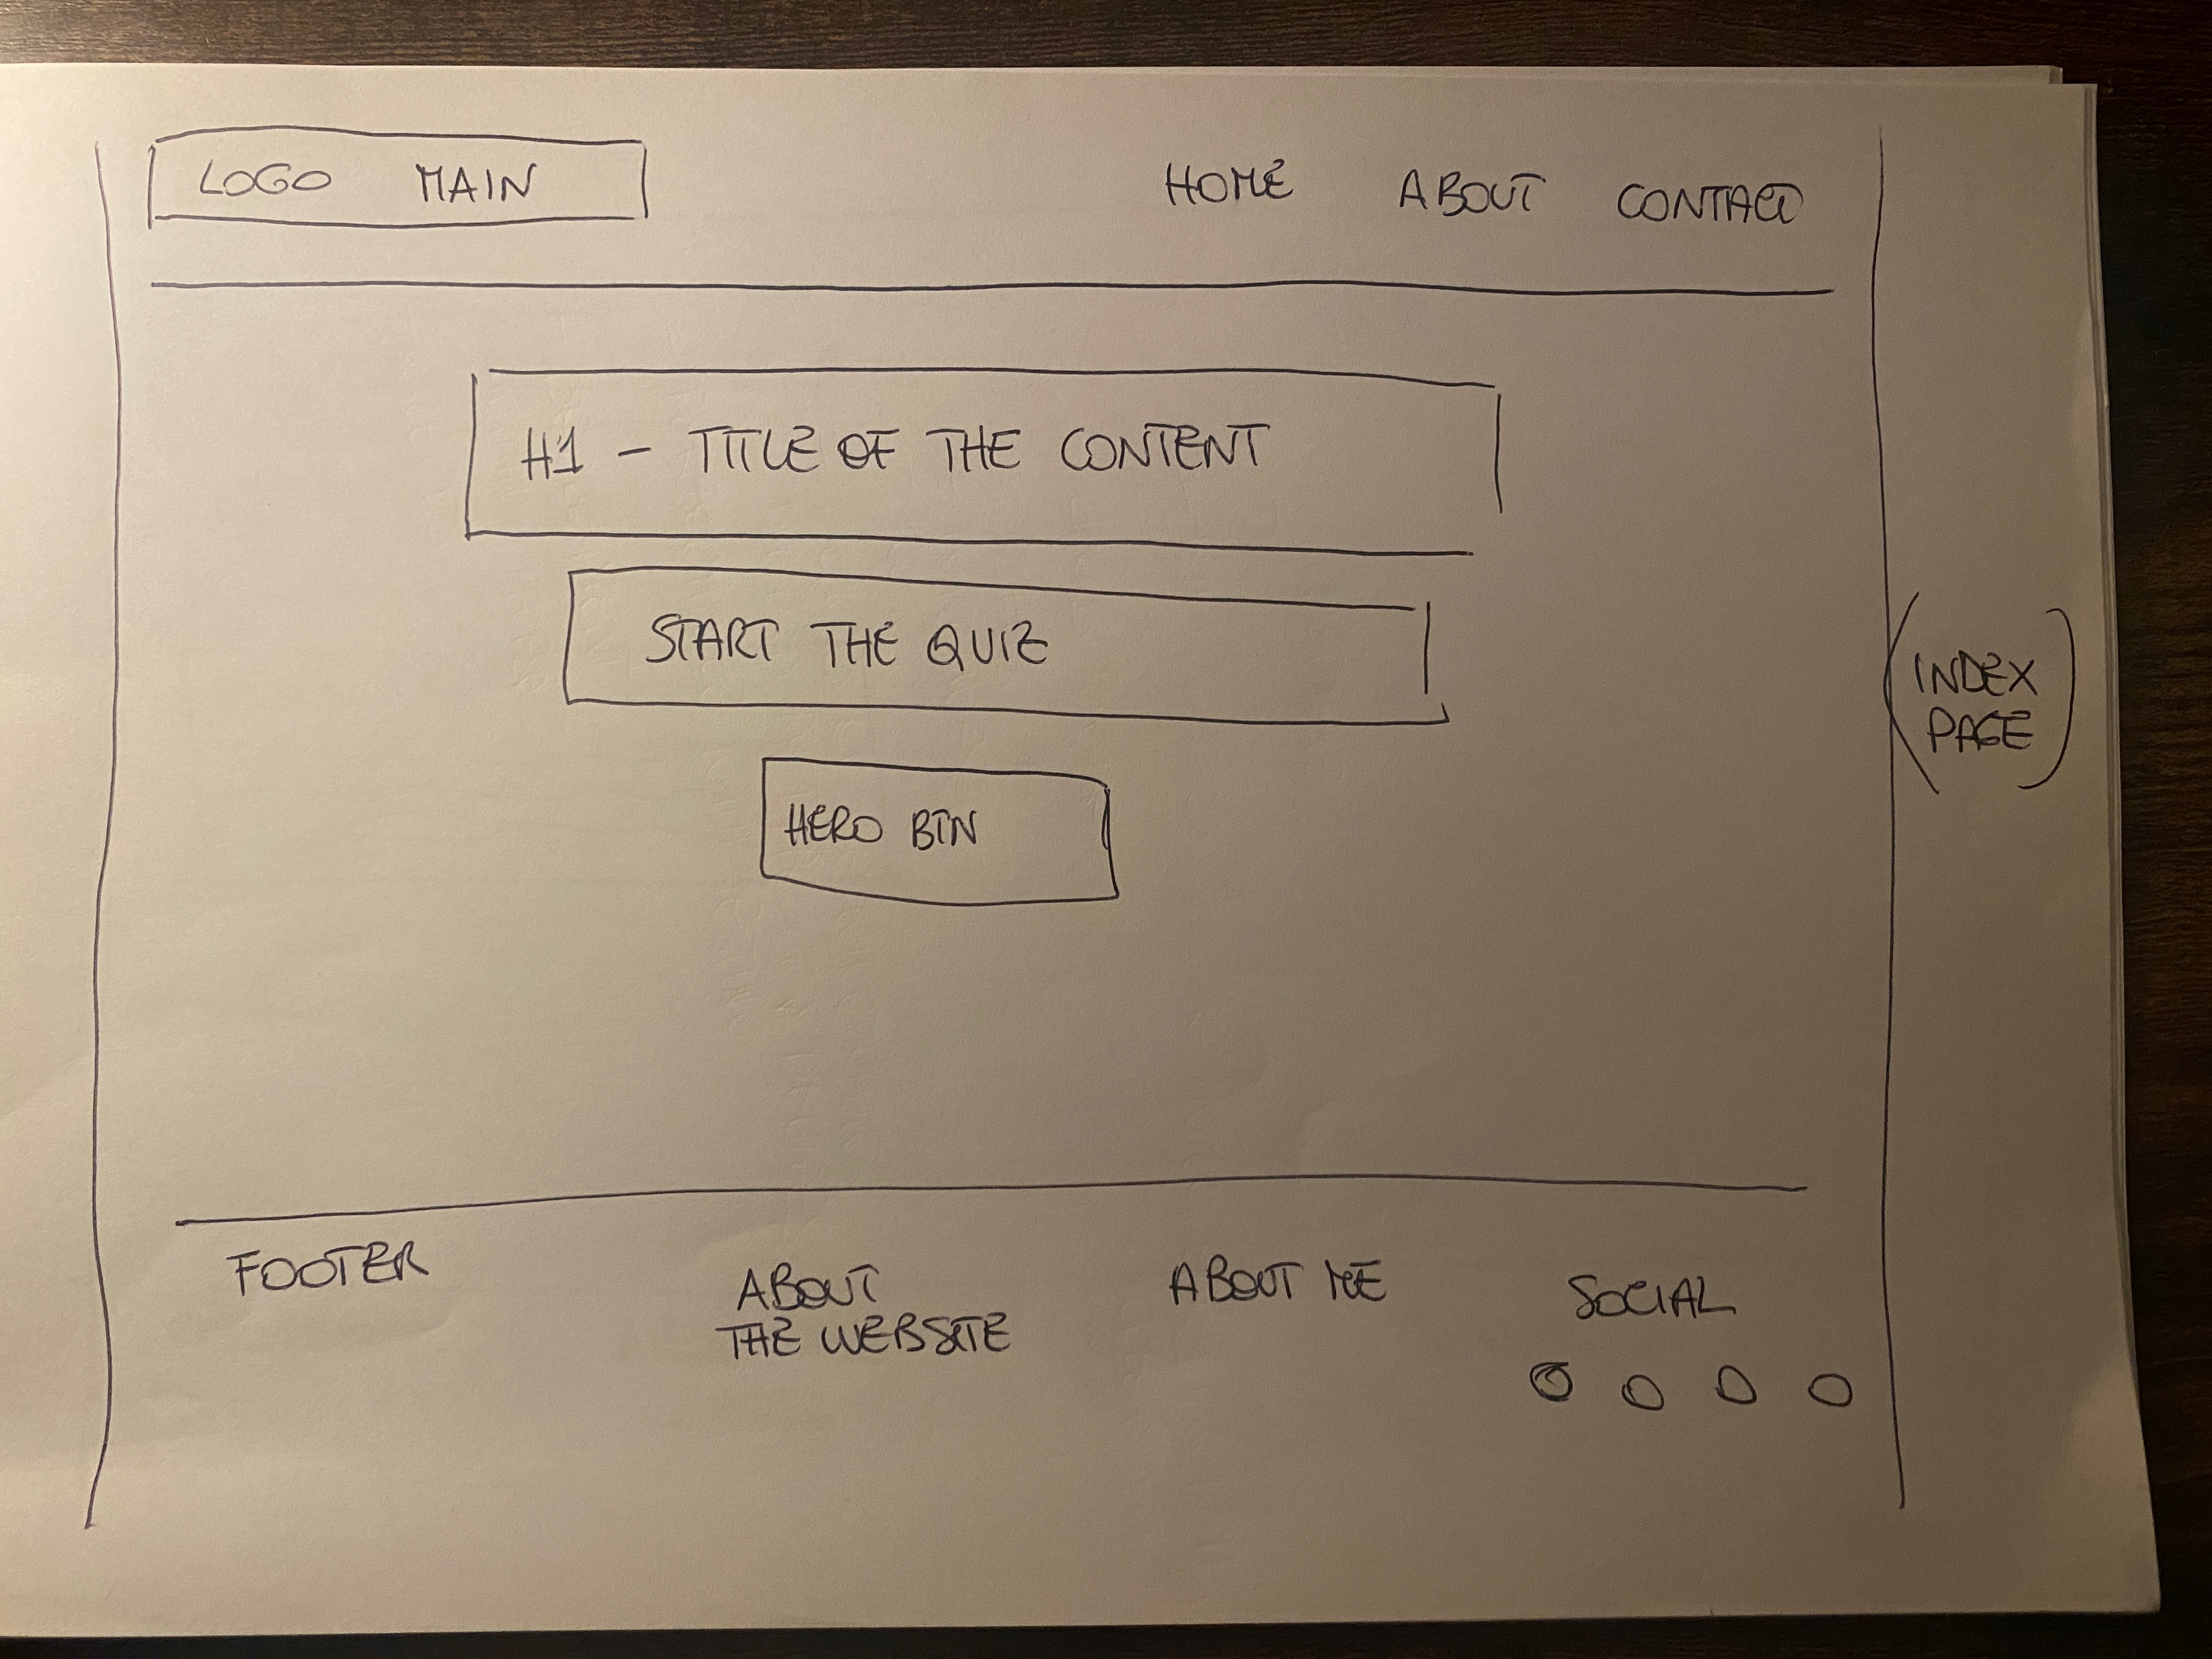 LOGO MAIN
HOME ABOUT CONTACT
H1 - TITLE OF THE CONTENT
START THE QUIZ
HERO BTN
(INDEX
PAGE)
FOOTER
ABOUT
THE WEBSITE
ABOUT ME
SOCIAL